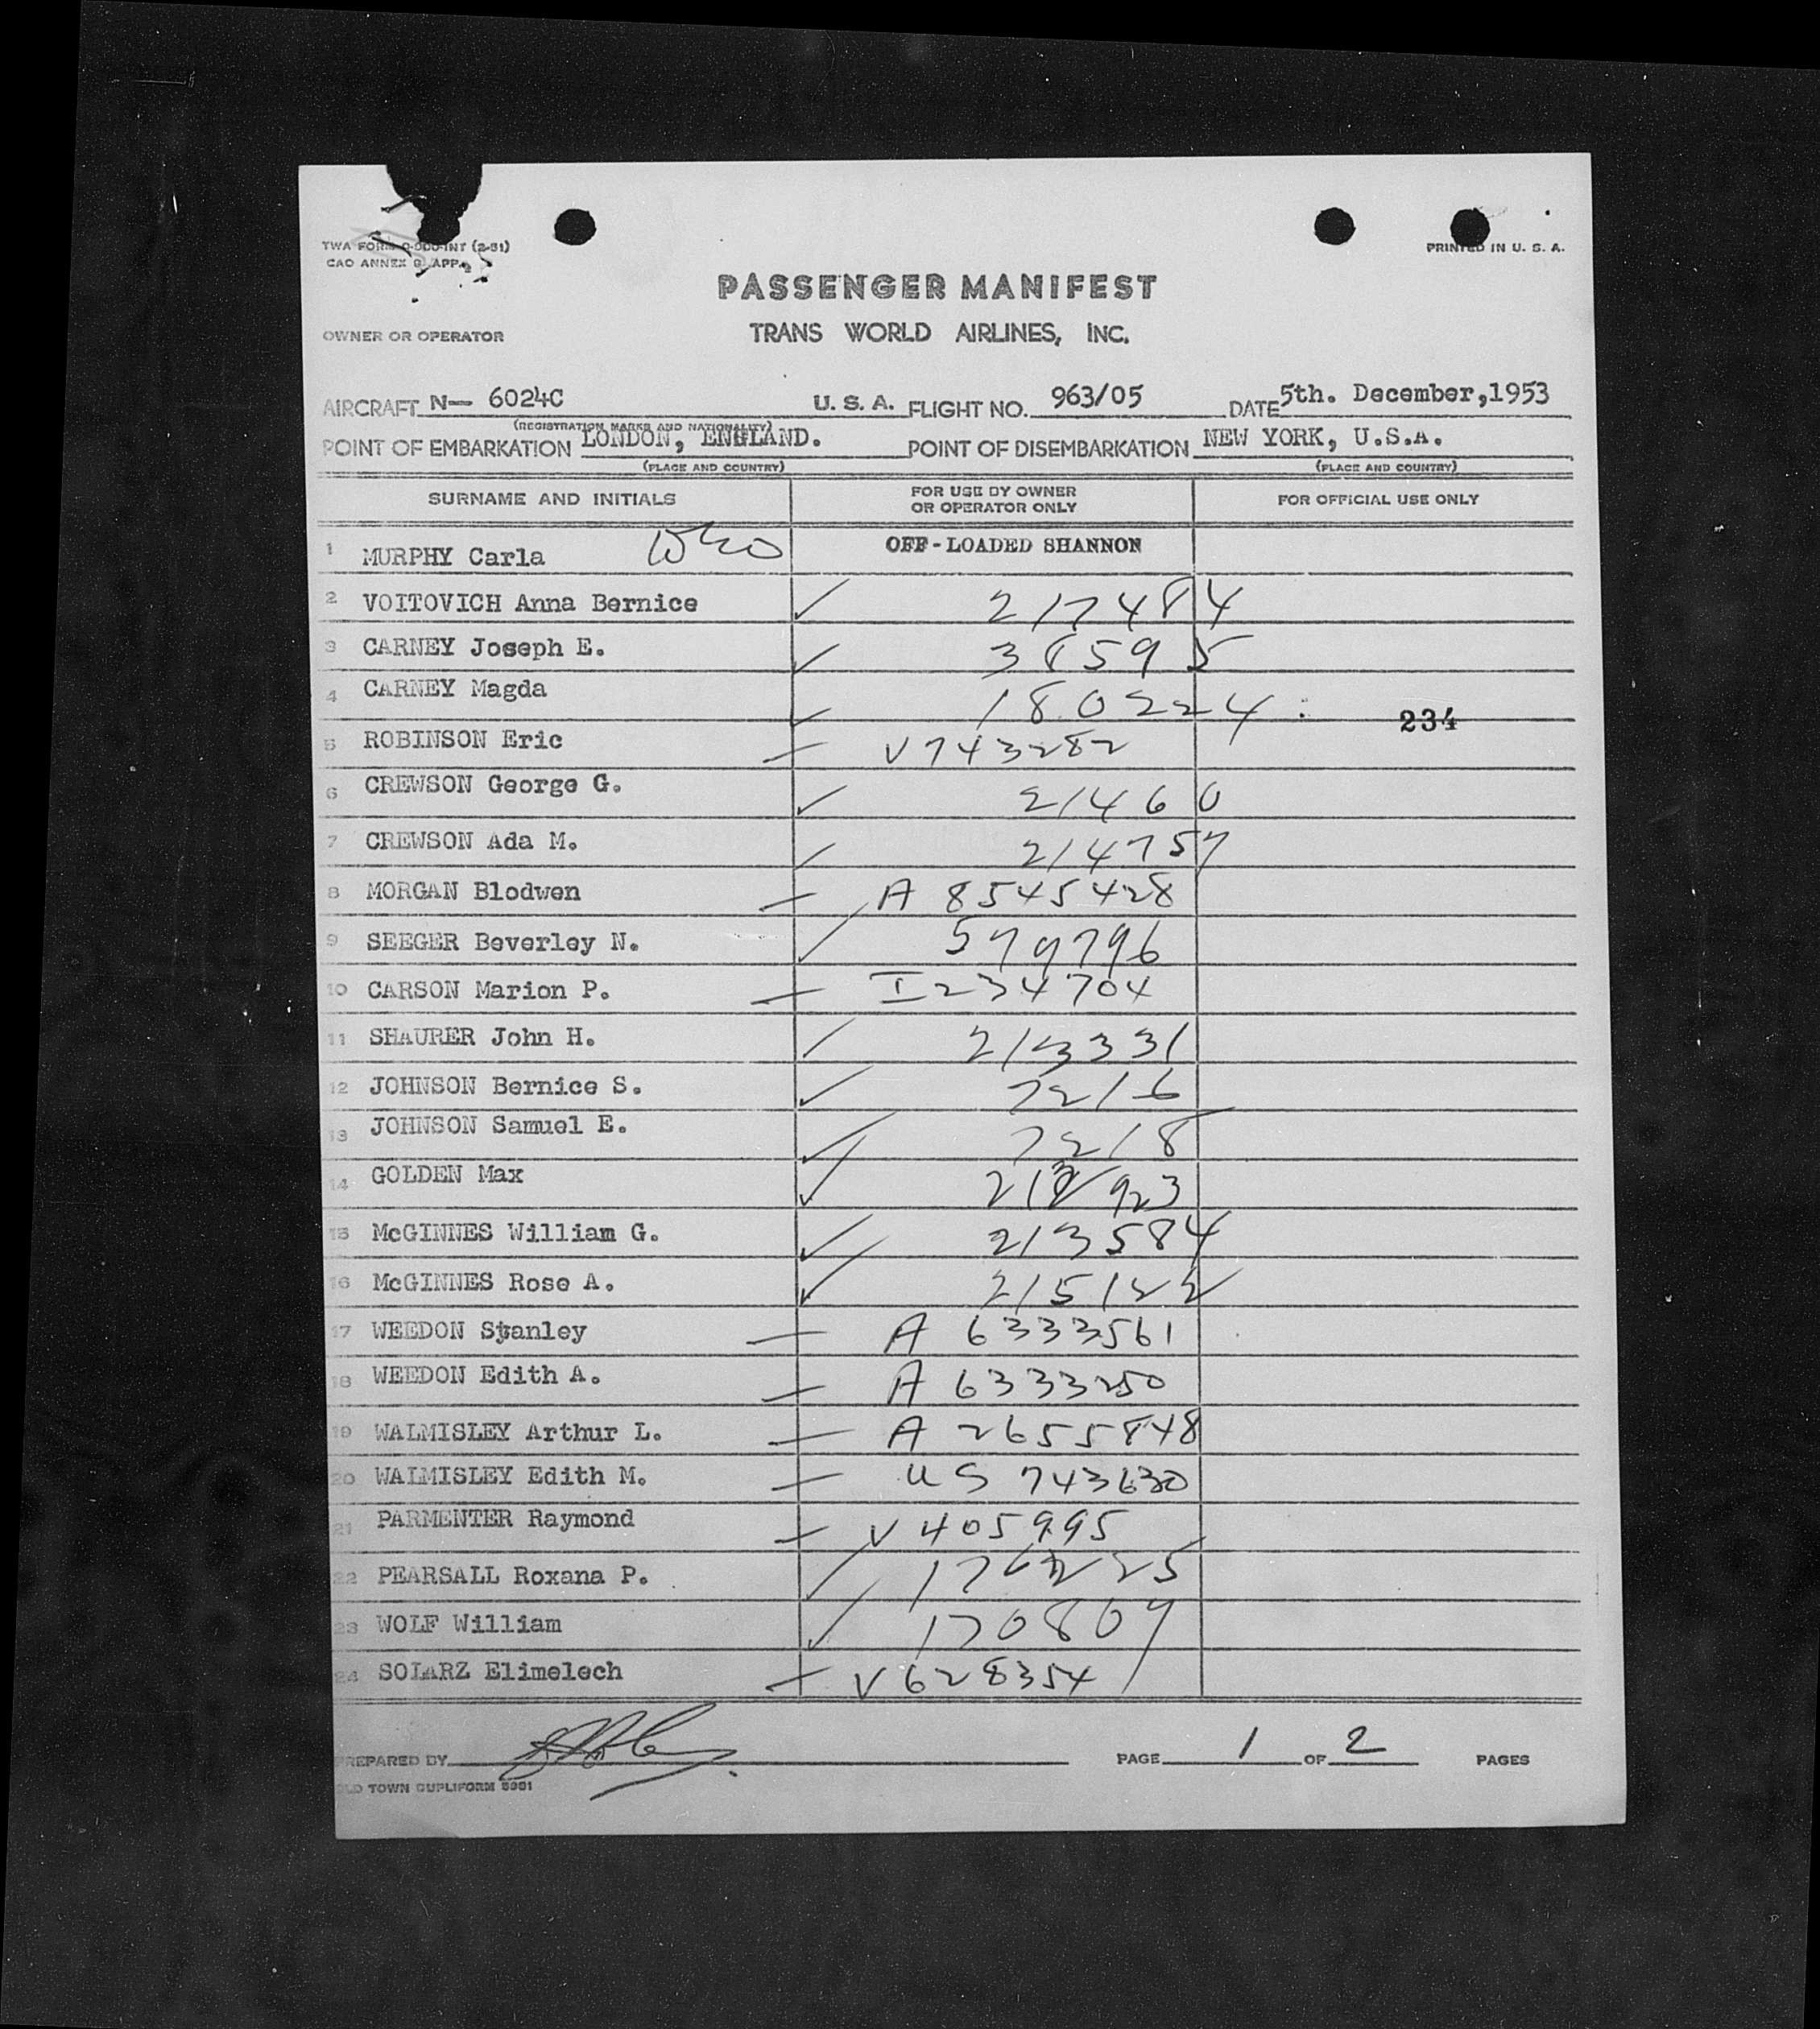 TWA FORM O-000-INT (2-51)
CAO ANNEX 9 APP.
PRINTED IN U. S. A.
PASSENGER MANIFEST
OWNER OR OPERATOR
TRANS WORLD AIRLINES, INC.
AIRCRAFT N— 6024C U. S. A. FLIGHT NO. 963/05 DATE 5th. December,1953
(REGISTRATION MARKS AND NATIONALITY)
POINT OF EMBARKATION LONDON, ENGLAND. POINT OF DISEMBARKATION NEW YORK, U.S.A.
(PLACE AND COUNTRY) (PLACE AND COUNTRY)
SURNAME AND INITIALS FOR USE BY OWNER OR OPERATOR ONLY FOR OFFICIAL USE ONLY
1 MURPHY Carla OFF-LOADED SHANNON
2 VOITOVICH Anna Bernice ✓ 217484
3 CARNEY Joseph E. ✓ 38595
4 CARNEY Magda ✓ 180224
234
5 ROBINSON Eric — V743282
6 CREWSON George G. ✓ 21460
7 CREWSON Ada M. ✓ 214757
8 MORGAN Blodwen — A 8545428
9 SEEGER Beverley N. ✓ 579796
10 CARSON Marion P. — I234704
11 SHAURER John H. ✓ 213331
12 JOHNSON Bernice S. ✓ 7216
13 JOHNSON Samuel E. ✓ 7218
14 GOLDEN Max ✓
15 McGINNES William G. ✓ 213584
16 McGINNES Rose A. ✓ 215122
17 WEEDON Stanley — A 6333561
18 WEEDON Edith A. — A 6333250
19 WALMISLEY Arthur L. — A 2655848
20 WALMISLEY Edith M. — US 743630
21 PARMENTER Raymond — V405995
22 PEARSALL Roxana P. ✓
23 WOLF William ✓ 170809
24 SOLARZ Elimelech — V628354
PREPARED BY PAGE 1 OF 2 PAGES
OLD TOWN DUPLIFORM 5991